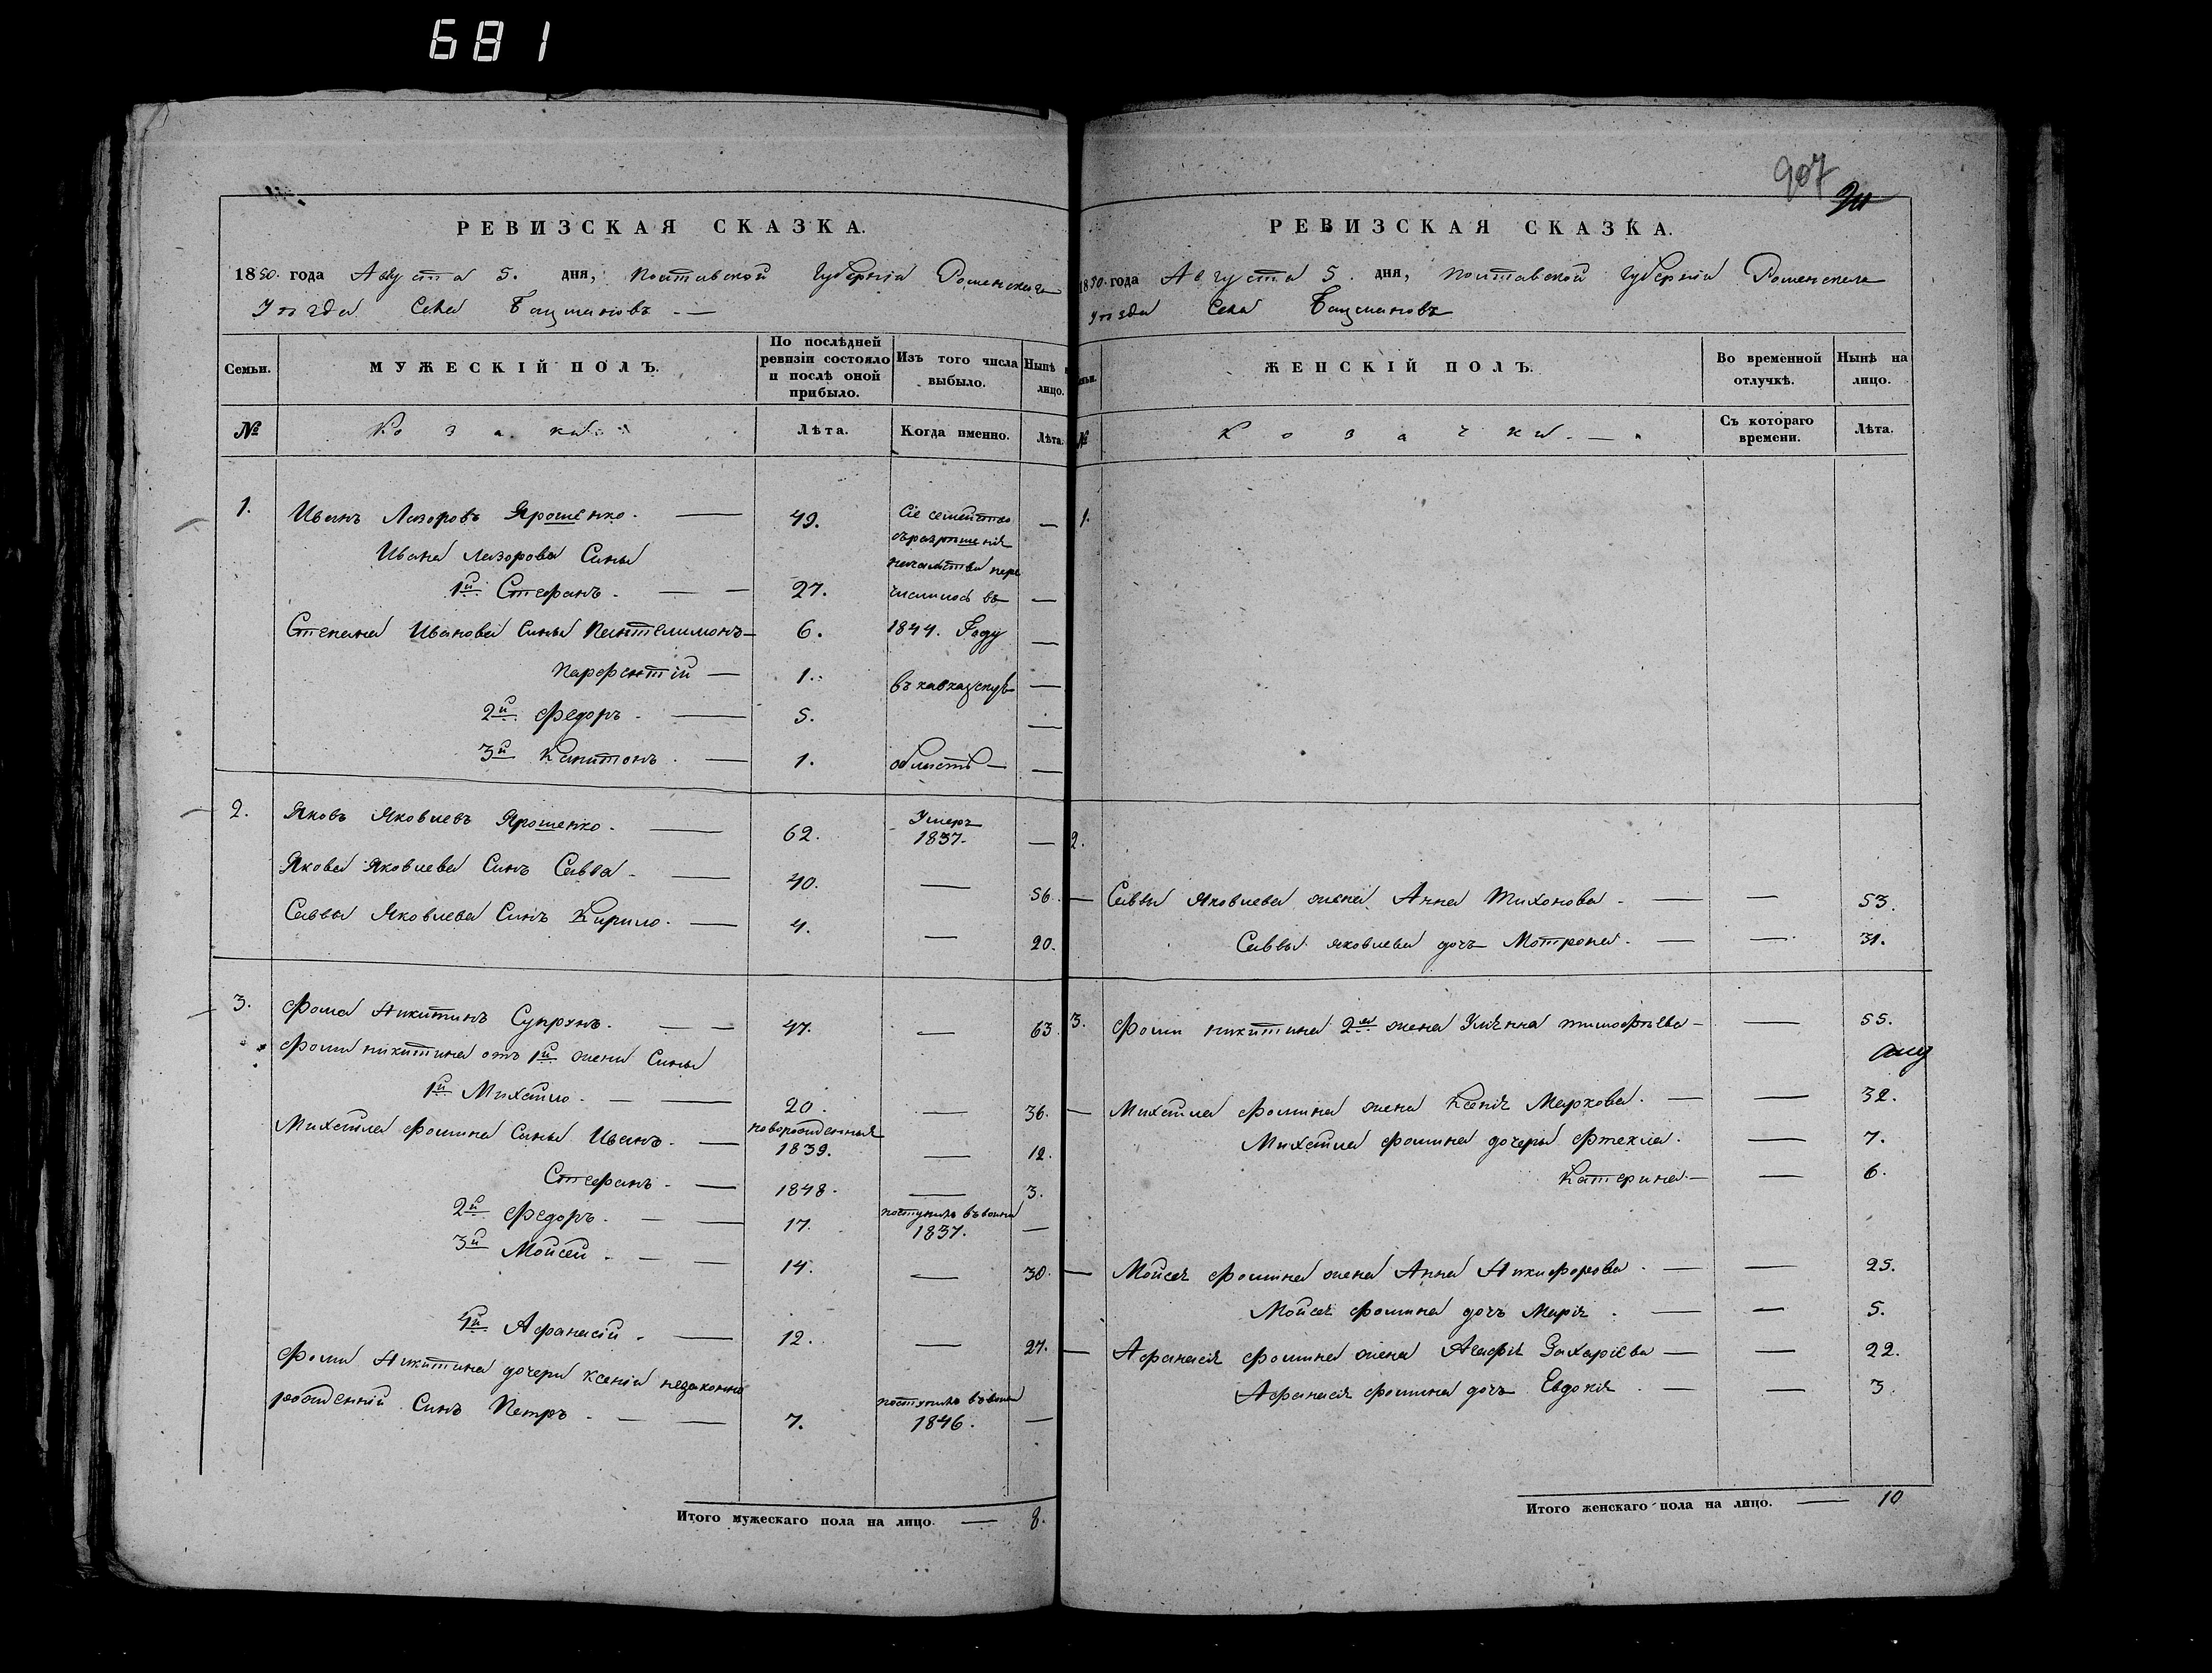 681
907
РЕВИЗСКАЯ СКАЗКА.
1850. года Августа 5. дня, Полтавской Губерніи Роменскаго
Уѣзда Села Бацмановъ
Семьи.
МУЖЕСКІЙ ПОЛЪ.
По послѣдней ревизіи состояло и послѣ оной прибыло.
Изъ того числа выбыло.
Нынѣ на лицо.
№
Козаки.
Лѣта.
Когда именно.
Лѣта.
1. Иванъ Лазоровъ Ярошенко. — 49. Сіе семейство —
съ разрѣшенія
Ивана Лазорова Сины
началства пере
1й Стефанъ. — 27. числилось въ —
Степана Иванова Сины Пантелимонъ — 6. 1844. Году —
Парфентій — 1. въ кавказскую —
2й Федоръ. — 5. —
3й Капитонъ. — 1. область —
2. Яковъ Яковлевъ Ярошенко. — 62. Умеръ 1837. —
Якова Яковлева Синъ Савва — 40. — 56.
Саввы Яковлева Синъ Кирило. — 4. — 20.
3. Фома Никитинъ Супрунъ. — 47. — 63.
Фомы Никитина отъ 1й жени Сины
1й Михайло. — 20. — 36.
Михайла Фомина Сины Иванъ. — новорожденныя 1839. — 12.
Стефанъ. — 1848. — 3.
2й Федоръ. — 17. поступилъ въ воины 1837. —
3й Мойсей. — 14. — 30.
4й Афанасій. — 12. — 27.
Фомы Никитина дочери Ксеніи незаконно
рожденній Синъ Петръ. — 7. поступилъ въ воины 1846. —
Итого мужескаго пола на лицо. — 8.
РЕВИЗСКАЯ СКАЗКА.
1850. года Августа 5. дня, Полтавской Губерніи Роменскаго
Уѣзда Села Бацмановъ
ЖЕНСКІЙ ПОЛЪ.
Во временной отлучкѣ.
Нынѣ на лицо.
№
Козачки. —
Съ котораго времени.
Лѣта.
1.
2.
Саввы Яковлева жена Анна Тихонова. — — 53.
Саввы Яковлева дочъ Мотрона. — — 31.
3. Фомы Никитина 2я жена Уліянна Тимофѣева — — 55.
Михайла Фомина жена Ксенія Маркова. — — 32.
Михайла Фомина дочеры Фтекла. — 7.
Катерина. — — 6.
Мойсея Фомина жена Анна Никифорова. — — 25.
Мойсея Фомина дочъ Марія. — — 5.
Афанасія Фомина жена Агафія Захаріева — — 22.
Афанасія Фомина дочъ Евдокія. — — 3.
Итого женскаго пола на лицо. — 10